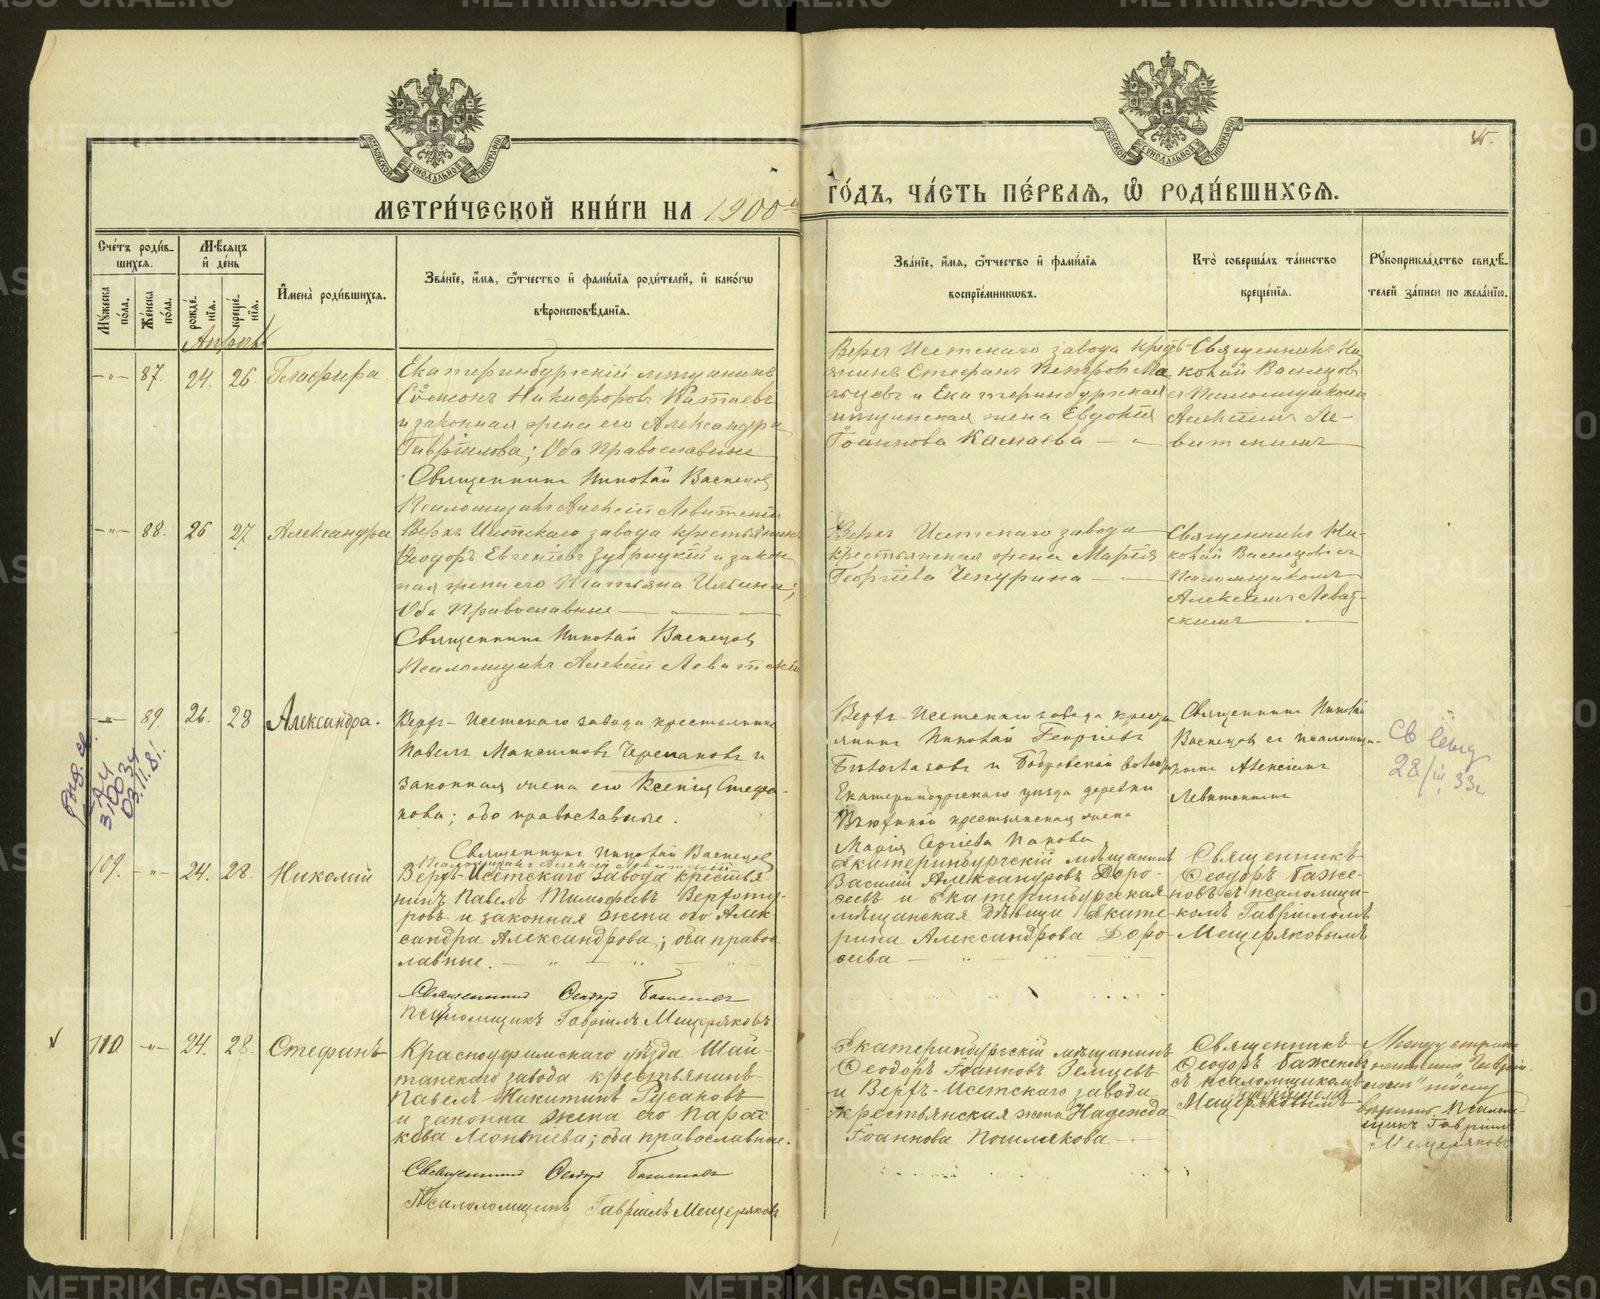 МЕТРИ́ЧЕСКОЙ КНИ́ГИ НА 1900й
ГО́ДЪ, ЧА́СТЬ ПЕ́РВАЯ, Ѿ РОДИ́ВШИХСЯ.
Сче́тъ роди́в-
шихся.
Мѣсяцъ
и҆ де́нь
Му́жеска по́ла.
Же́нска по́ла.
рожде́нія.
креще́нія.
И҆мена̀ роди́вшихся.
Зва́нїе, и҆́мя, ѻ҆́тчество и҆ фами́лїя роди́телей, и҆ како́гѡ
вѣроисповѣ́данїя.
Зва́нїе, и҆́мя, ѻ҆́тчество и҆ фами́лїя
воспрїе́мникѡвъ.
Кто̀ соверша́лъ та́инство
креще́нїя.
Рꙋкоприкла́дство свидѣ́-
телей за́писи по жела́нїю.
Апрѣль
87. 24. 26. Глафира
Екатеринбургскій мѣщанинъ
Сѵмеонъ Никифоровъ
и законная жена его Александра
Гавріилова; Оба Православные
Священникъ Николай Васнецов
Псаломщикъ Алексій Левитскій
Верхъ Исетскаго завода кресть-
янинъ Стефанъ Петровъ Ма-
льцевъ и Екатеринбургская
мѣщанская жена Евдокія
Іоаннова
Священникъ Ни-
колай Васнецов
съ Псаломщиком
Алексіемъ Ле-
витскимъ
88. 26 27 Александра
Верхъ Исетскаго завода крестьянинъ
Ѳеодоръ Евгеніевъ Зубрицкій и закон
ная жена его Татьяна Ильина;
Оба Православные
Священникъ Николай Васнецов
Псаломщикъ Алексій Левитскій
Верхъ Исетскаго завода
крестьянская жена Марія
Георгіева Чепурина
Священникъ Ни-
колай Васнецовъ съ
Псаломщикомъ
Алексіемъ Левит-
скимъ
89. 26. 28 Александра.
Верхъ-Исетскаго завода крестьянинъ
Павелъ Максимовъ Черепановъ и
законная жена его Ксенія Стефа-
нова; оба православные.
Священникъ Николай Васнецов
Псаломщикъ Алексій Левитскій
Верхъ-Исетскаго завода кресть
янинъ Николай Георгіевъ
и Бобровской волости
Екатеринбургскаго уѣзда деревни
крестьянская жена
Марія Сергіева Попова
Священникъ Николай
Васнецов съ псаломщи-
комъ Алексіемъ
Левитскимъ
28/III 33г
109. 24. 28. Николай
Верхъ-Исетскаго завода крестья
нинъ Павелъ Тимофеевъ
и законная жена его Алек
сандра Александрова; оба правос
лавные.
Священникъ Ѳеодоръ Баженовъ
Псаломщикъ Гавріилъ Мещеряковъ
Екатеринбургскій мѣщанинъ
Василій Александровъ Доро-
ѳеевъ и Екатеринбургская
мѣщанская дѣвица Екате-
рина Александрова Доро-
ѳеева
Священникъ
Ѳеодоръ Баже-
новъ съ псаломщи-
комъ Гавріиломъ
Мещеряковымъ
110. 24. 28. Стефанъ
Красноуфимскаго уѣзда Шай-
танскаго завода крестьянинъ
Павелъ Никитинъ Русаковъ
и законна жена его Парас
кева Леонтіева; оба православные.
Священникъ Ѳеодоръ Баженовъ
Псаломщикъ Гавріилъ Мещеряковъ
Екатеринбургскій мѣщанинъ
Ѳеодоръ Іоанновъ
и Верхъ-Исетскаго завода
крестьянская жена Надежда
Іоаннова Пошлякова
Священникъ
Ѳеодоръ Баженовъ
съ псаломщикомъ
Гавріиломъ
Мещеряковымъ
Между строкъ
Псалом-
щикъ Гавріилъ
Мещеряковъ
METRIKI.GASO-URAL.RU